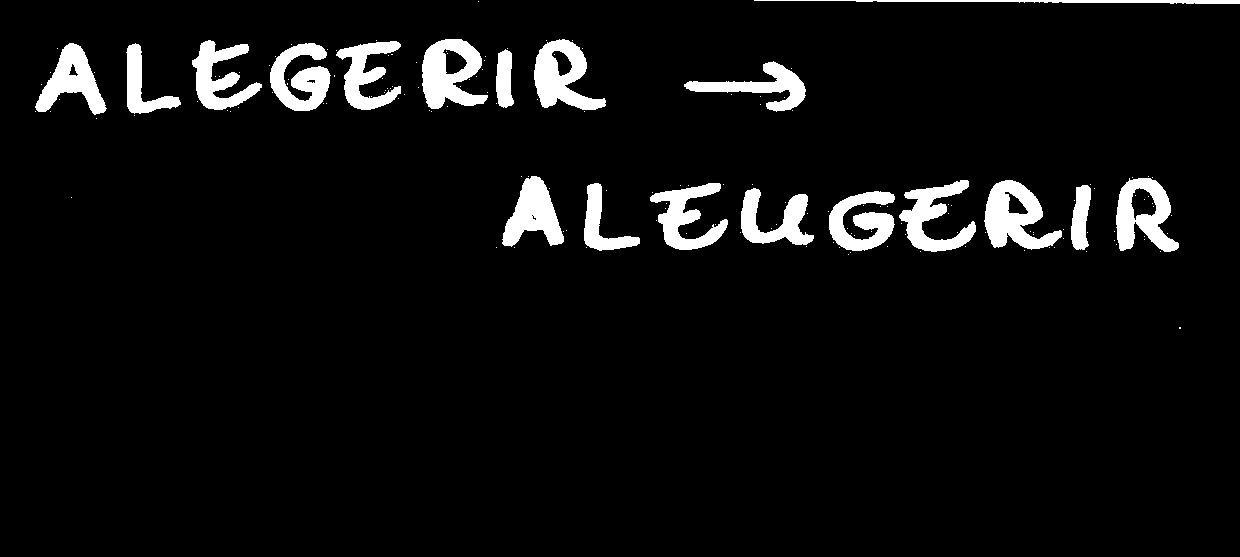 ALEGERIR →
ALEUGERIR